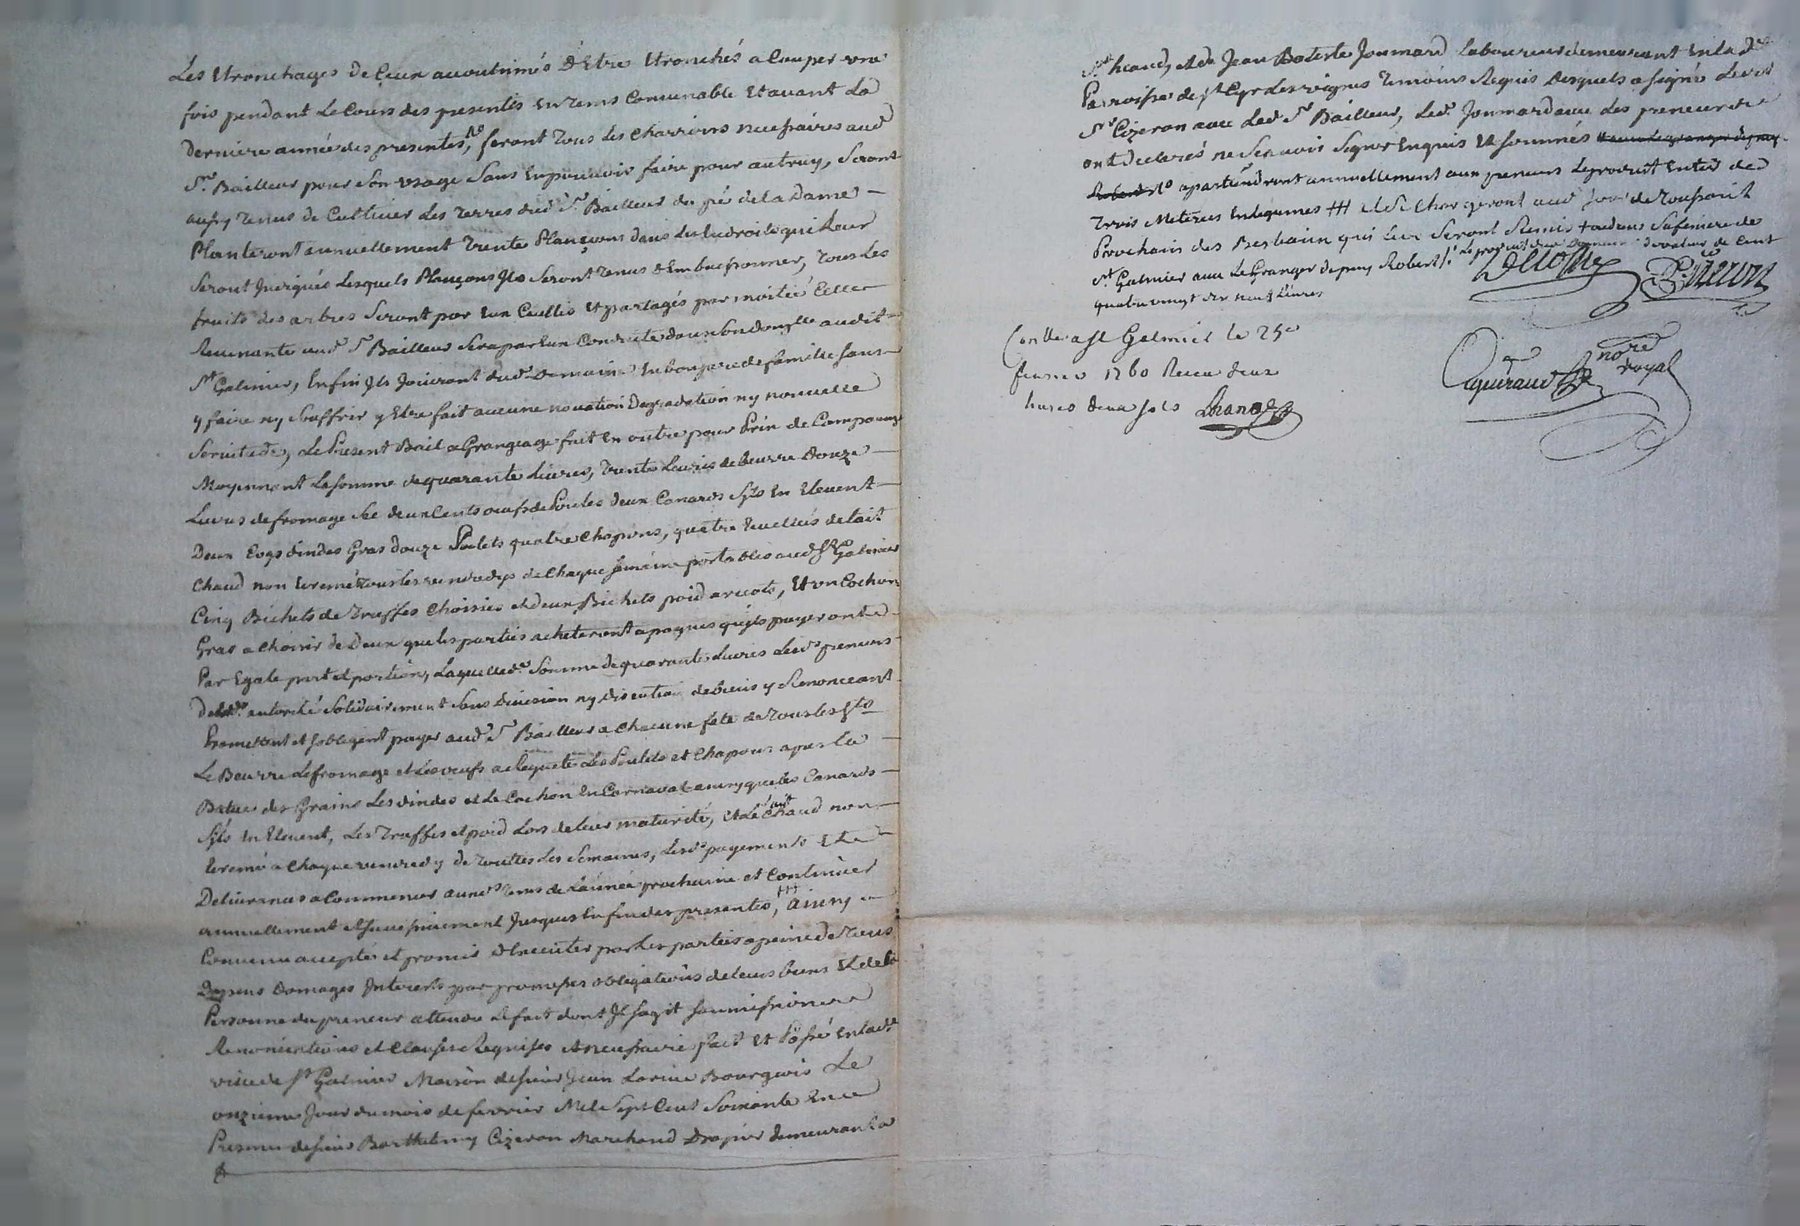 Les Etronchages de Ceux accoutumés d'Etre Etronchés a Couper une
fois pendant le Cours des presentes En tems Convenable Et avant La
Derniere année des presentes, feront tous les Charrions necessaires aud
Sr. Bailleur pour Son usage Sans En pouvoir faire pour autruy, Seront
aussy tenus de Cultiver Les terres dud Sr. Bailleur du pré de la Dame
Planteront annuellement trente Plançons dans les Endroits qui Leur
Seront Indiqués Lesquels Plançons Ils Seront tenus d'Embuissonner, tous Les
fruits des arbres Seront par Eux Cueillis Et partagés par moitié Celle
Revenante aud Sr Bailleur Sera par Eux Conduite dans Son domicille audit
St Galmier, Enfin Ils Jouiront dud. Domaine En bon pere de famille Sans
y faire ny Souffrir y Etre fait aucune novation Degradation ny nouvelle
Servitude, Le Present Bail a Grangeage fait En outre pour Prix de
Moyennant La Somme de quarante Livres, trente Livres de beurre Douze
Livres de fromage Sec deux Cents oeufs de Poules deux Canards S'Ils En Elevent
Deux Coqs d'indes Gras douze Poulets quatre Chapons, quatre de lait
Chaud non Ecremé tous les vendredys de Chaque Semaine portables aud St Galmier
Cinq Bichets de truffes Choisies et deux Bichets poid aricots, Et un Cochon
Gras a Choisir de Deux que les parties acheteront a paques qu'ils payeront
Par Egale part et portion, Laquelle de. Somme de quarante Livres Lesd. preneurs
autorité Solidairement Sans Division ny discution de biens y Renonceant
Promettent et s'obligent payer aud Sr Bailleur a Chacune fete de tous les Sts
Le Beurre Le fromage et Les oeufs a Les Poulets et Chapons apres La
Battue des Grains Les dindes et Le Cochon En Carnaval ainsy que les Canards
S'Ils En Elevent, Les truffes et poid Lors de leur maturité, et Le lait Chaud non
Ecremé a Chaque vendredy de toutes Les Semaines, Lesd. payements Et
Delivrances a Commencer auxd. tems de L'année prochaine et Continuer
annuellement et Successivement Jusques En fin des presentes, +++ ainsy
Convenu accepté et promis d'Executer par Les parties a peine de tous
Depens Domages Interets par promesses obligations de leurs biens Et de la
Personne du preneur attendu Le fait dont Il S'agit Soumissions
Renonciations et Clauses Requises et necessaires fait Et Passé En lad.
ville de St Galmier Maison de Sieur Jean Bourgeois Le
onzieme Jour du mois de fevrier Mil Sept Cent Soixante En
Presence de Sieur Barthelemy Cizeron Marchand Drapier demeurant a
St. heand, et de Jean Batiste Joumard Laboureur demeurant En lad.
Parroisse de St Cyr Les vignes temoins Requis Desquels a Signé Led.
Sr. Cizeron avec Led. Sr. Bailleur, Led. Joumard avec Les preneurs
ont declarés ne Scavoir Signer Enquis Et Sommés
apartiendront annuellement aux preneurs Le produit Entier de
trois Meterees En legumes +++ et Se Chargeront aud Jour de toussaint
Prochain des Bestiaux qui Leur Seront Remis
St. Galmier avec Le Granger Robert de valeur de Cent
quatre vingt dix neuf Livres
Cizeron
Conlle a St Galmier le 25e
fevrier 1760 Receu deux
livres deux sols
notre
royal